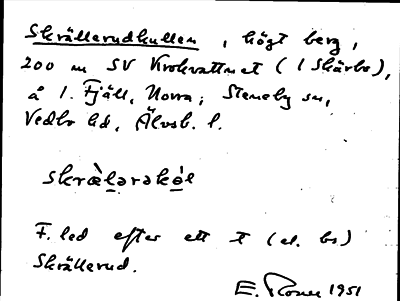 Skrällerudkullen, högt berg,
200 m SV Krokvattnet (i Skärbo),
å 1. Fjäll, Norra; Steneby sn,
Vedbo hd, Älvsb. l.
skræ̀lərəkə́l
F. led efter ett t (el. bs)
Skrällerud.
E. 1951